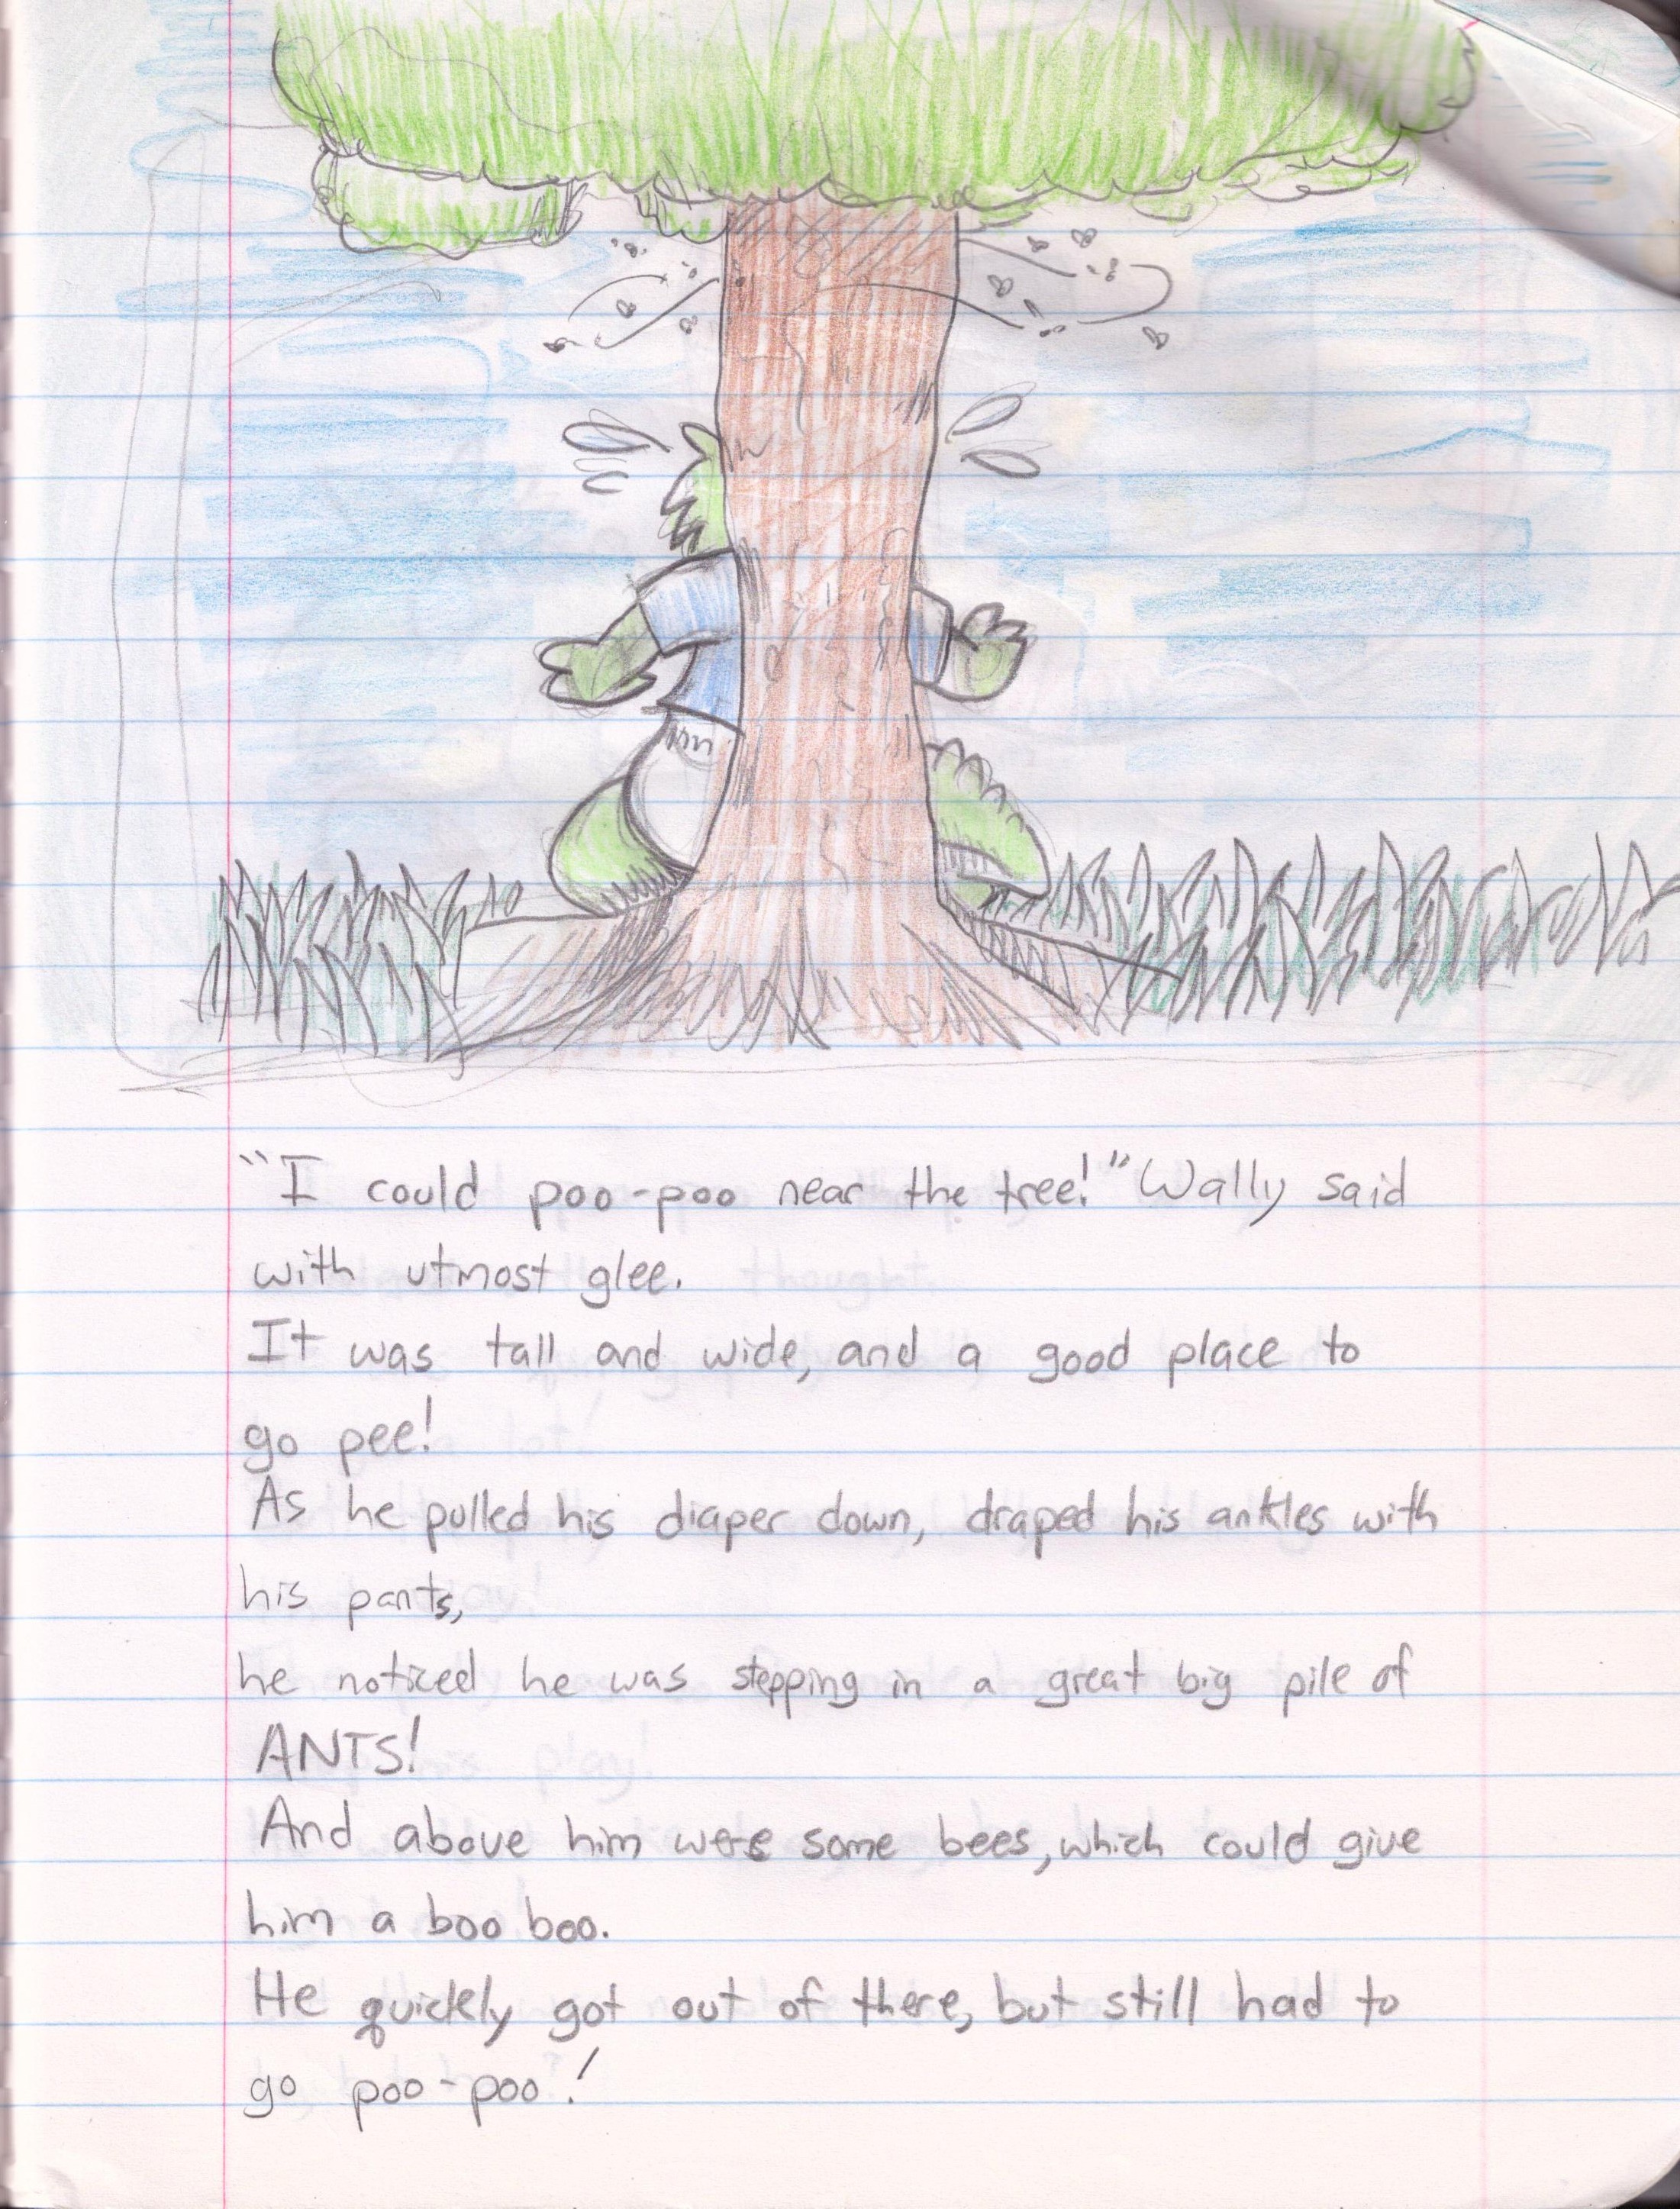 “I could poo-poo near the tree!” Wally said
with utmost glee.
It was tall and wide, and a good place to
go pee!
As he pulled his diaper down, draped his ankles with
his pants,
he noticed he was stepping in a great big pile of
ANTS!
And above him were some bees, which could give
him a boo boo.
He quickly got out of there, but still had to
go poo-poo!